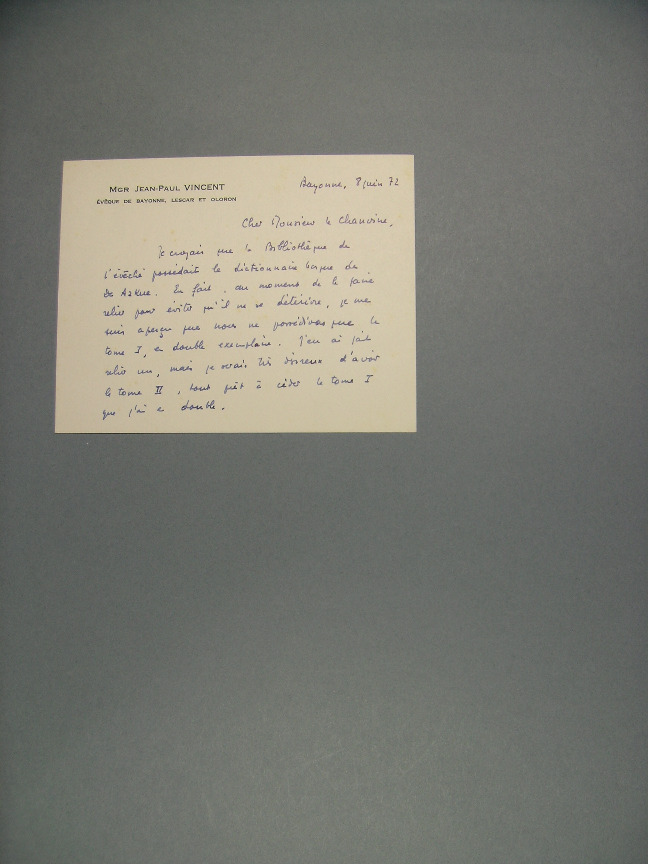 MGR JEAN-PAUL VINCENT
ÉVÊQUE DE BAYONNE, LESCAR ET OLORON
Bayonne, 8 juin 72
Cher Monsieur le Chanoine,
Je croyais que la Bibliothèque de
l'évêché possédait le dictionnaire basque de
de Azkue. En fait, au moment de le faire
relier pour éviter qu'il ne se détériore, je me
suis aperçu que nous ne possédions que le
tome I, en double exemplaire. J'en ai fait
relier un, mais je serais très désireux d'avoir
le tome II, tout prêt à céder le tome I
que j'ai en double.